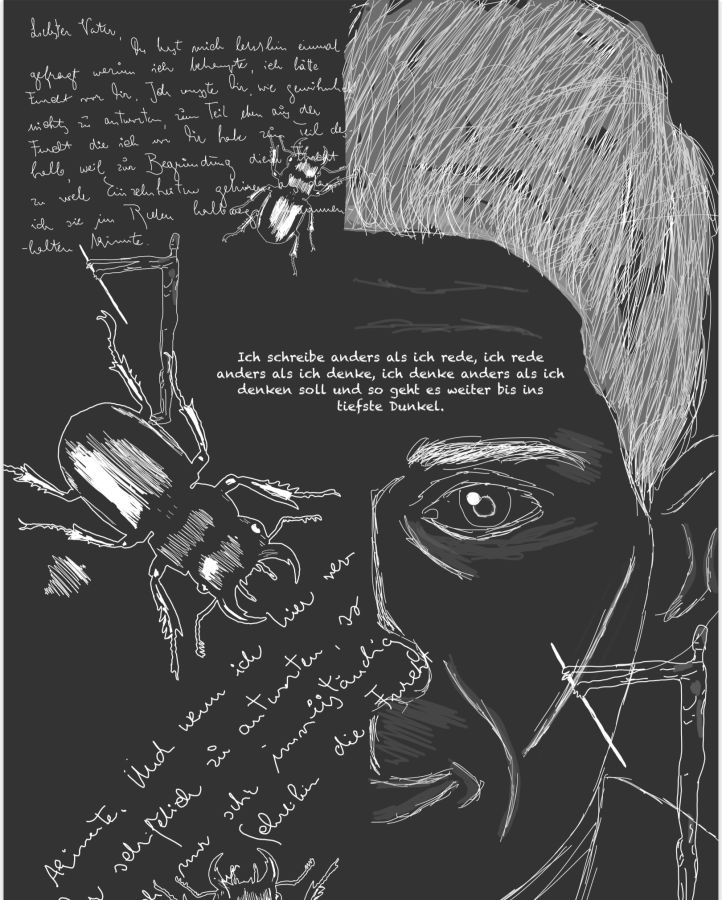 Liebster Vater,
Du hast mich letzthin einmal
gefragt warum ich behaupte, ich hätte
Furcht vor Dir. Ich wusste Dir, wie gewöhnlich
nichts zu antworten, zum Teil eben aus der
Furcht die ich vor Dir habe zum Teil des
halb, weil zur Begründung dieser Furcht
zu viele Einzelheiten gehören
ich sie im Reden halbwegs
-halten könnte.
Ich schreibe anders als ich rede, ich rede
anders als ich denke, ich denke anders als ich
denken soll und so geht es weiter bis ins
tiefste Dunkel.
könnte. Und wenn ich hier ver
schriftlich zu antworten, so
nur sehr unvollständig
die Furcht